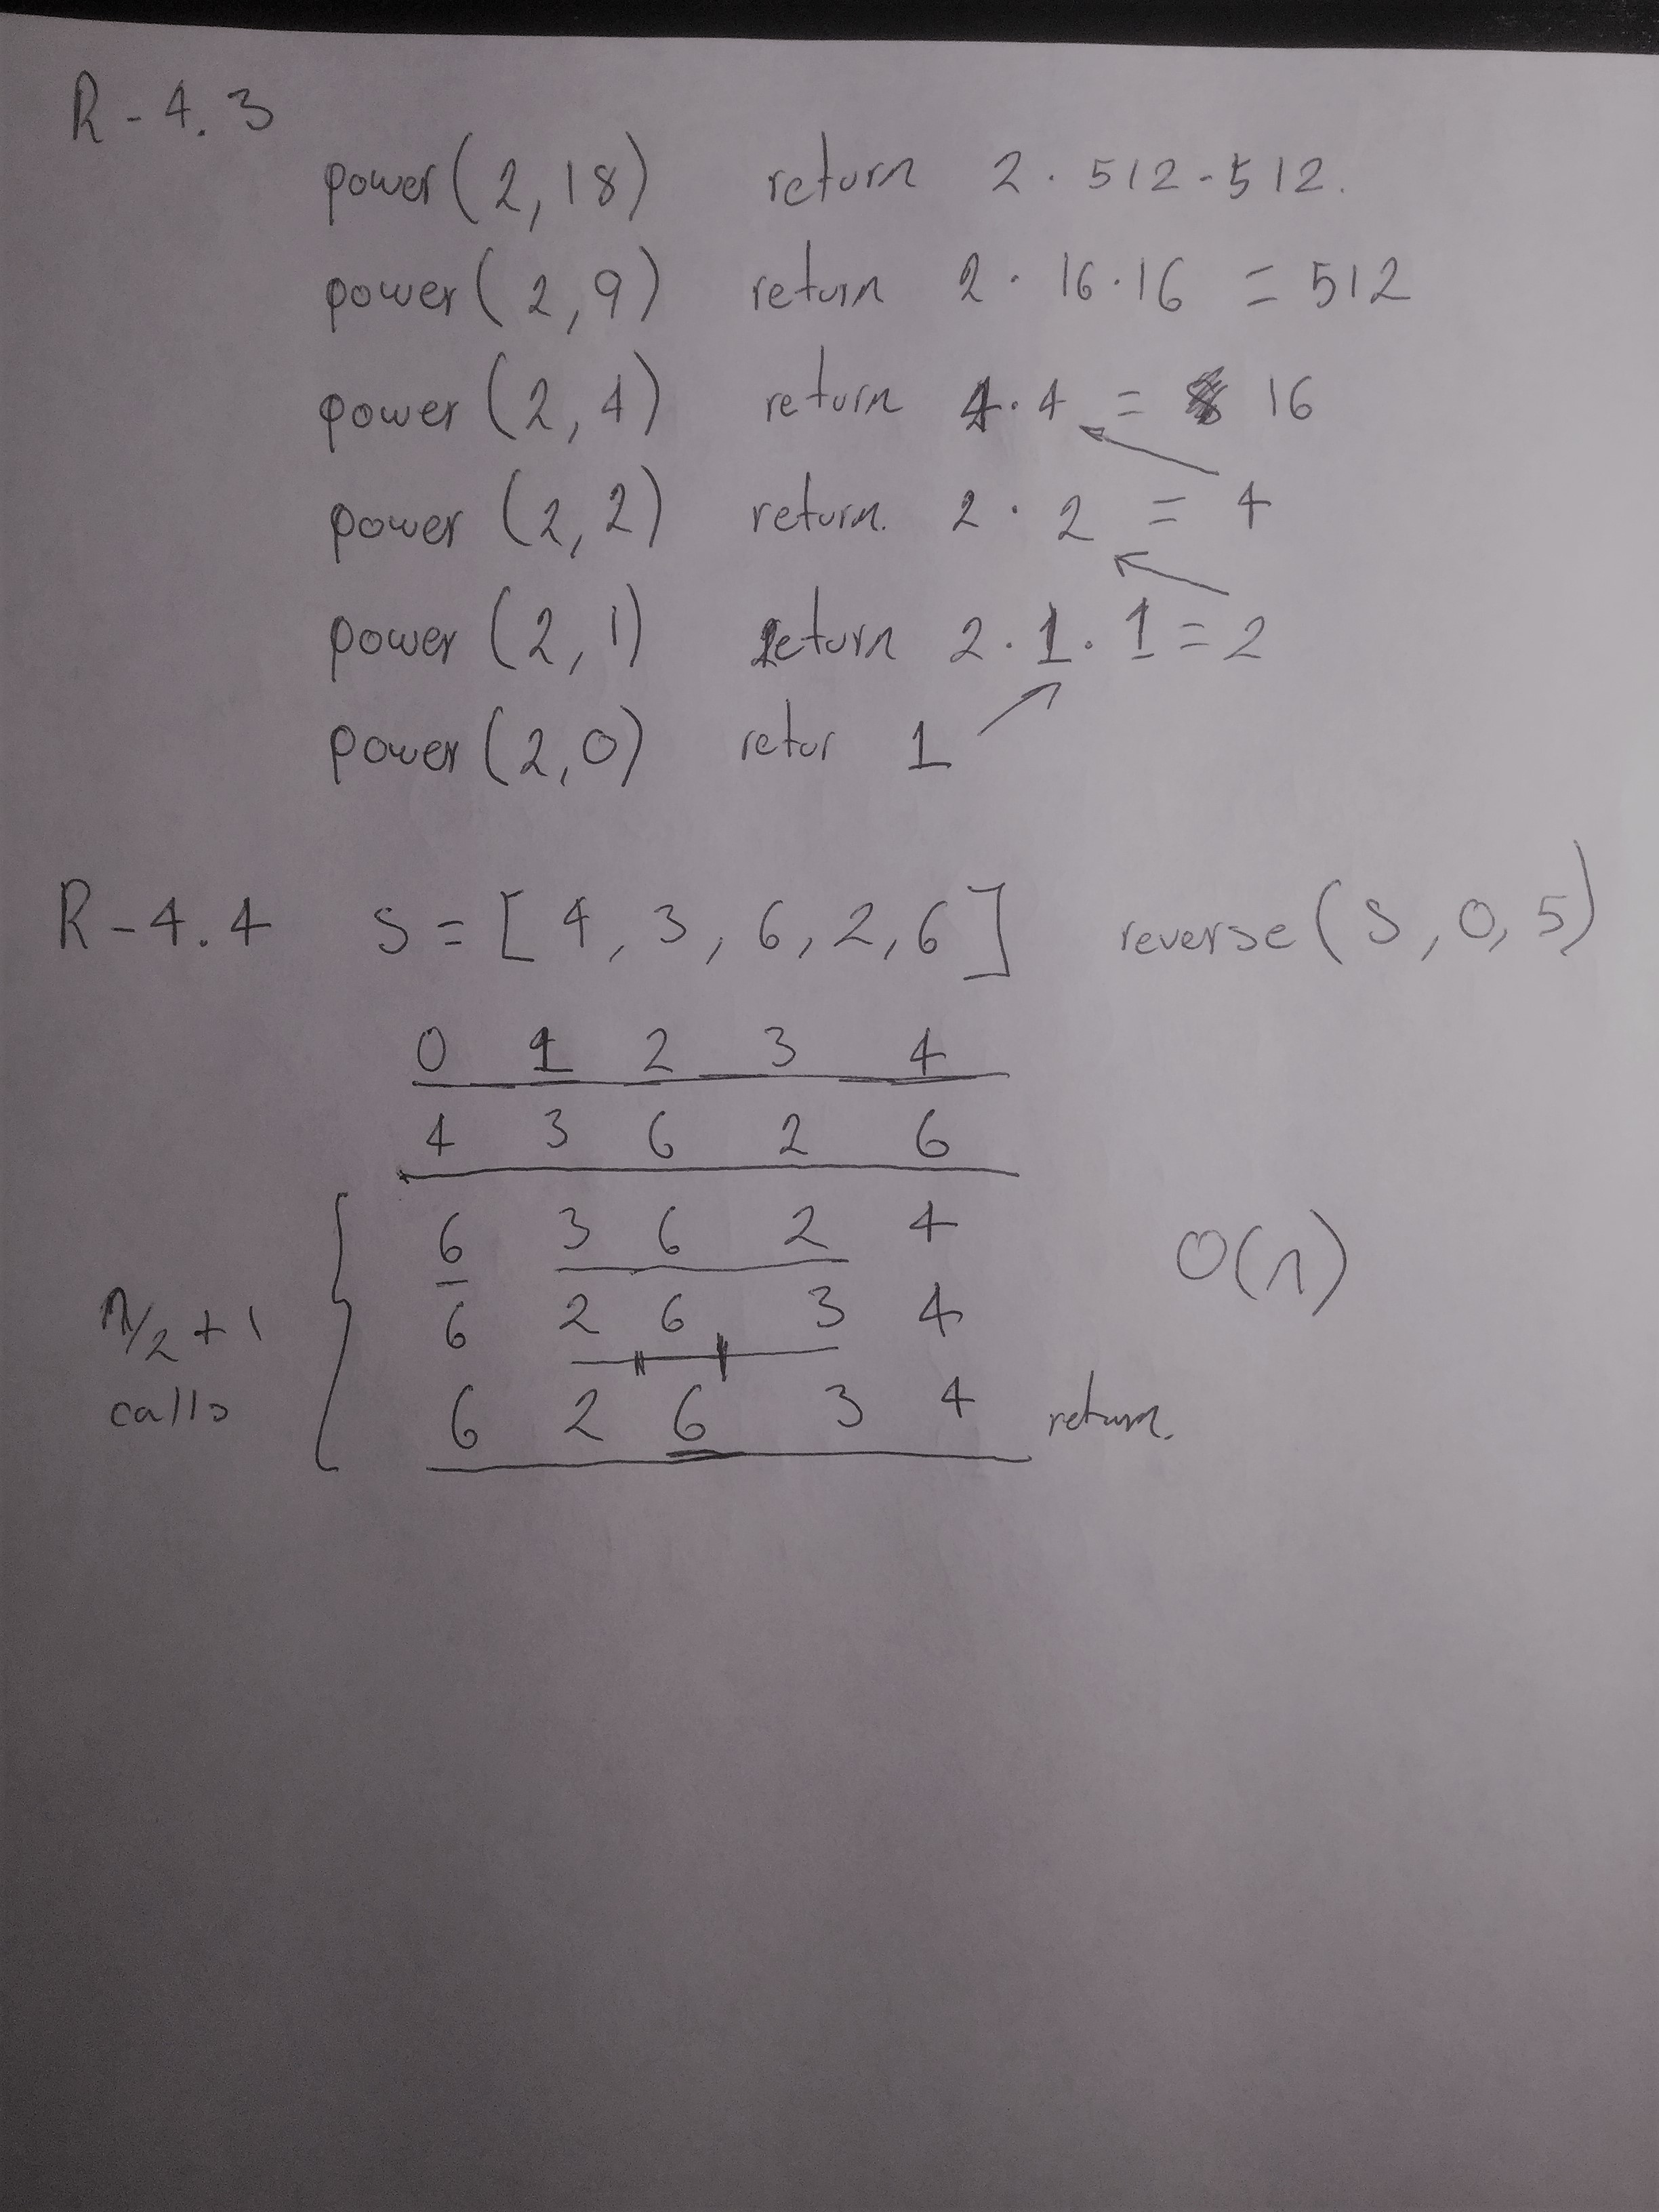 R-4.3
power(2,18) return 2 · 512 · 512.
power(2,9) return 2 · 16 · 16 = 512
power(2,4) return 4 · 4 = 16
power(2,2) return. 2 · 2 = 4
power(2,1) return 2 · 1 · 1 = 2
power(2,0) retur 1
R-4.4 S = [4, 3, 6, 2, 6] reverse(S, 0, 5)
0 1 2 3 4
4 3 6 2 6
6 3 6 2 4
O(n)
n/2 + 1
6 2 6 3 4
calls
6 2 6 3 4 return.